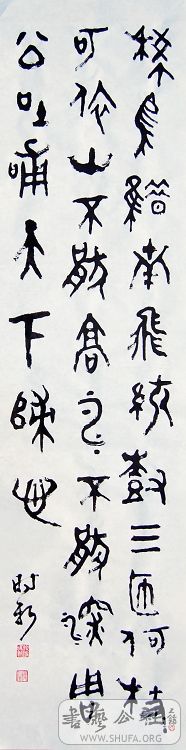 烏鵲南飛繞樹三匝何枝
可依山不厭高不厭深周
公吐哺天下歸心
書藝公社
WWW.SHUFA.ORG